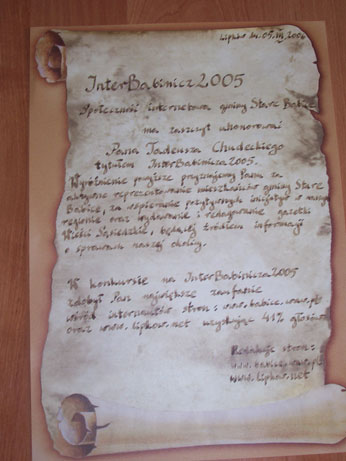 Lipków dn. 05.III.2006
InterBabinicz 2005
Społeczność internetowa gminy Stare Babice
ma zaszczyt uhonorować
Pana Tadeusza Chudeckiego
tytułem InterBabinicza 2005.
Wyróżnienie powyższe przyznajemy Panu za
aktywne reprezentowanie mieszkańców gminy Stare
Babice, za wspieranie pozytywnych inicjatyw w naszym
regionie oraz wydawanie i redagowanie gazetki
Wieści Sąsiedzkie, będącej źródłem informacji
o sprawach naszej okolicy.
W konkursie na InterBabinicza 2005
zdobył Pan największe zaufanie
wśród internautów stron: www.babice.waw.pl
oraz www.lipkow.net uzyskując 41% głosów
Redakcje stron:
www.babice.waw.pl
www.lipkow.net